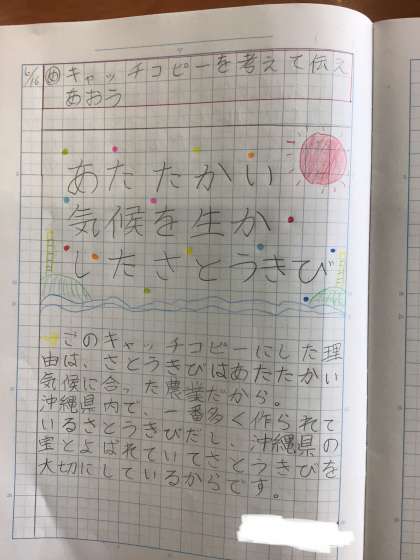 6/16 め キャッチコピーを考えて伝え
あおう
あたたかい
気候を生か
したさとうきび
このキャッチコピーにした理
由は、さとうきびはあたたかい
気候に合った農業だから。
沖縄県内で、一番多く作られて
いるさとうきびだし、沖縄県の
宝とよばれていてさとうきびを
大切にしているからです。